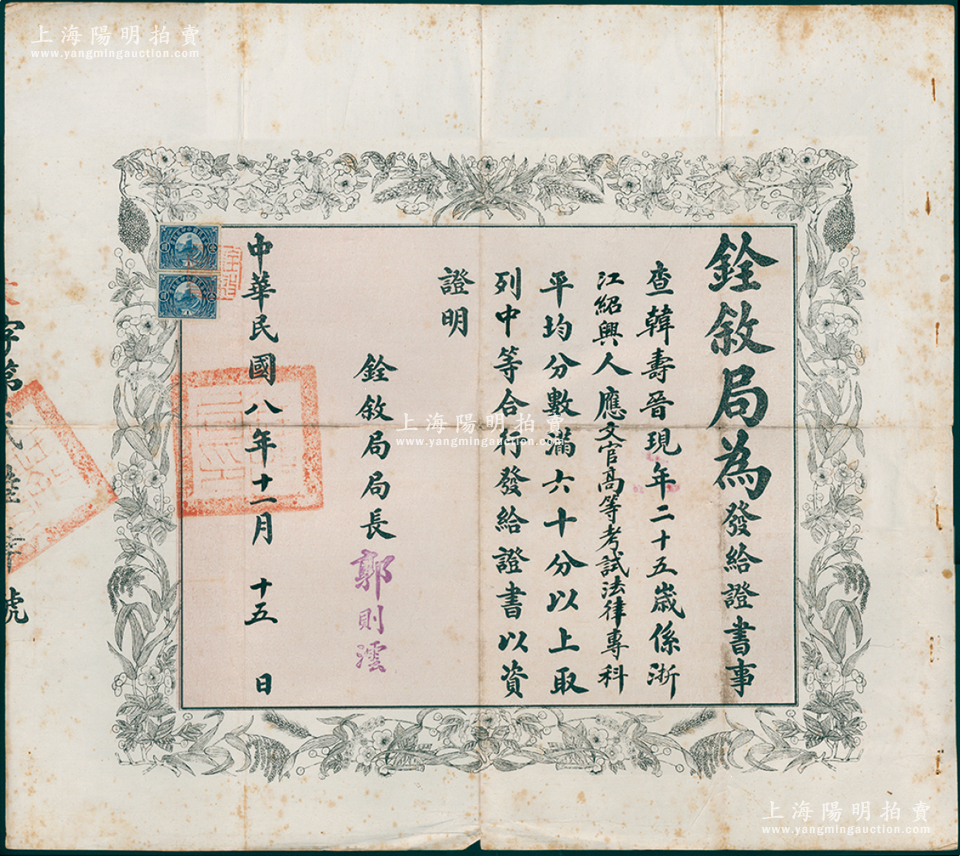 銓敘局為發給證書事
查韓壽晉現年二十五歲係浙
江紹興人應文官高等考試法律專科
平均分數滿六十分以上取
列中等合行發給證書以資
證明
銓敘局局長郭則澐
中華民國八年十一月十五日
字第
號
上海陽明拍賣
www.yangmingauction.com
上海陽明拍賣
www.yangmingauction.com
上海陽明拍賣
www.yangmingauction.com